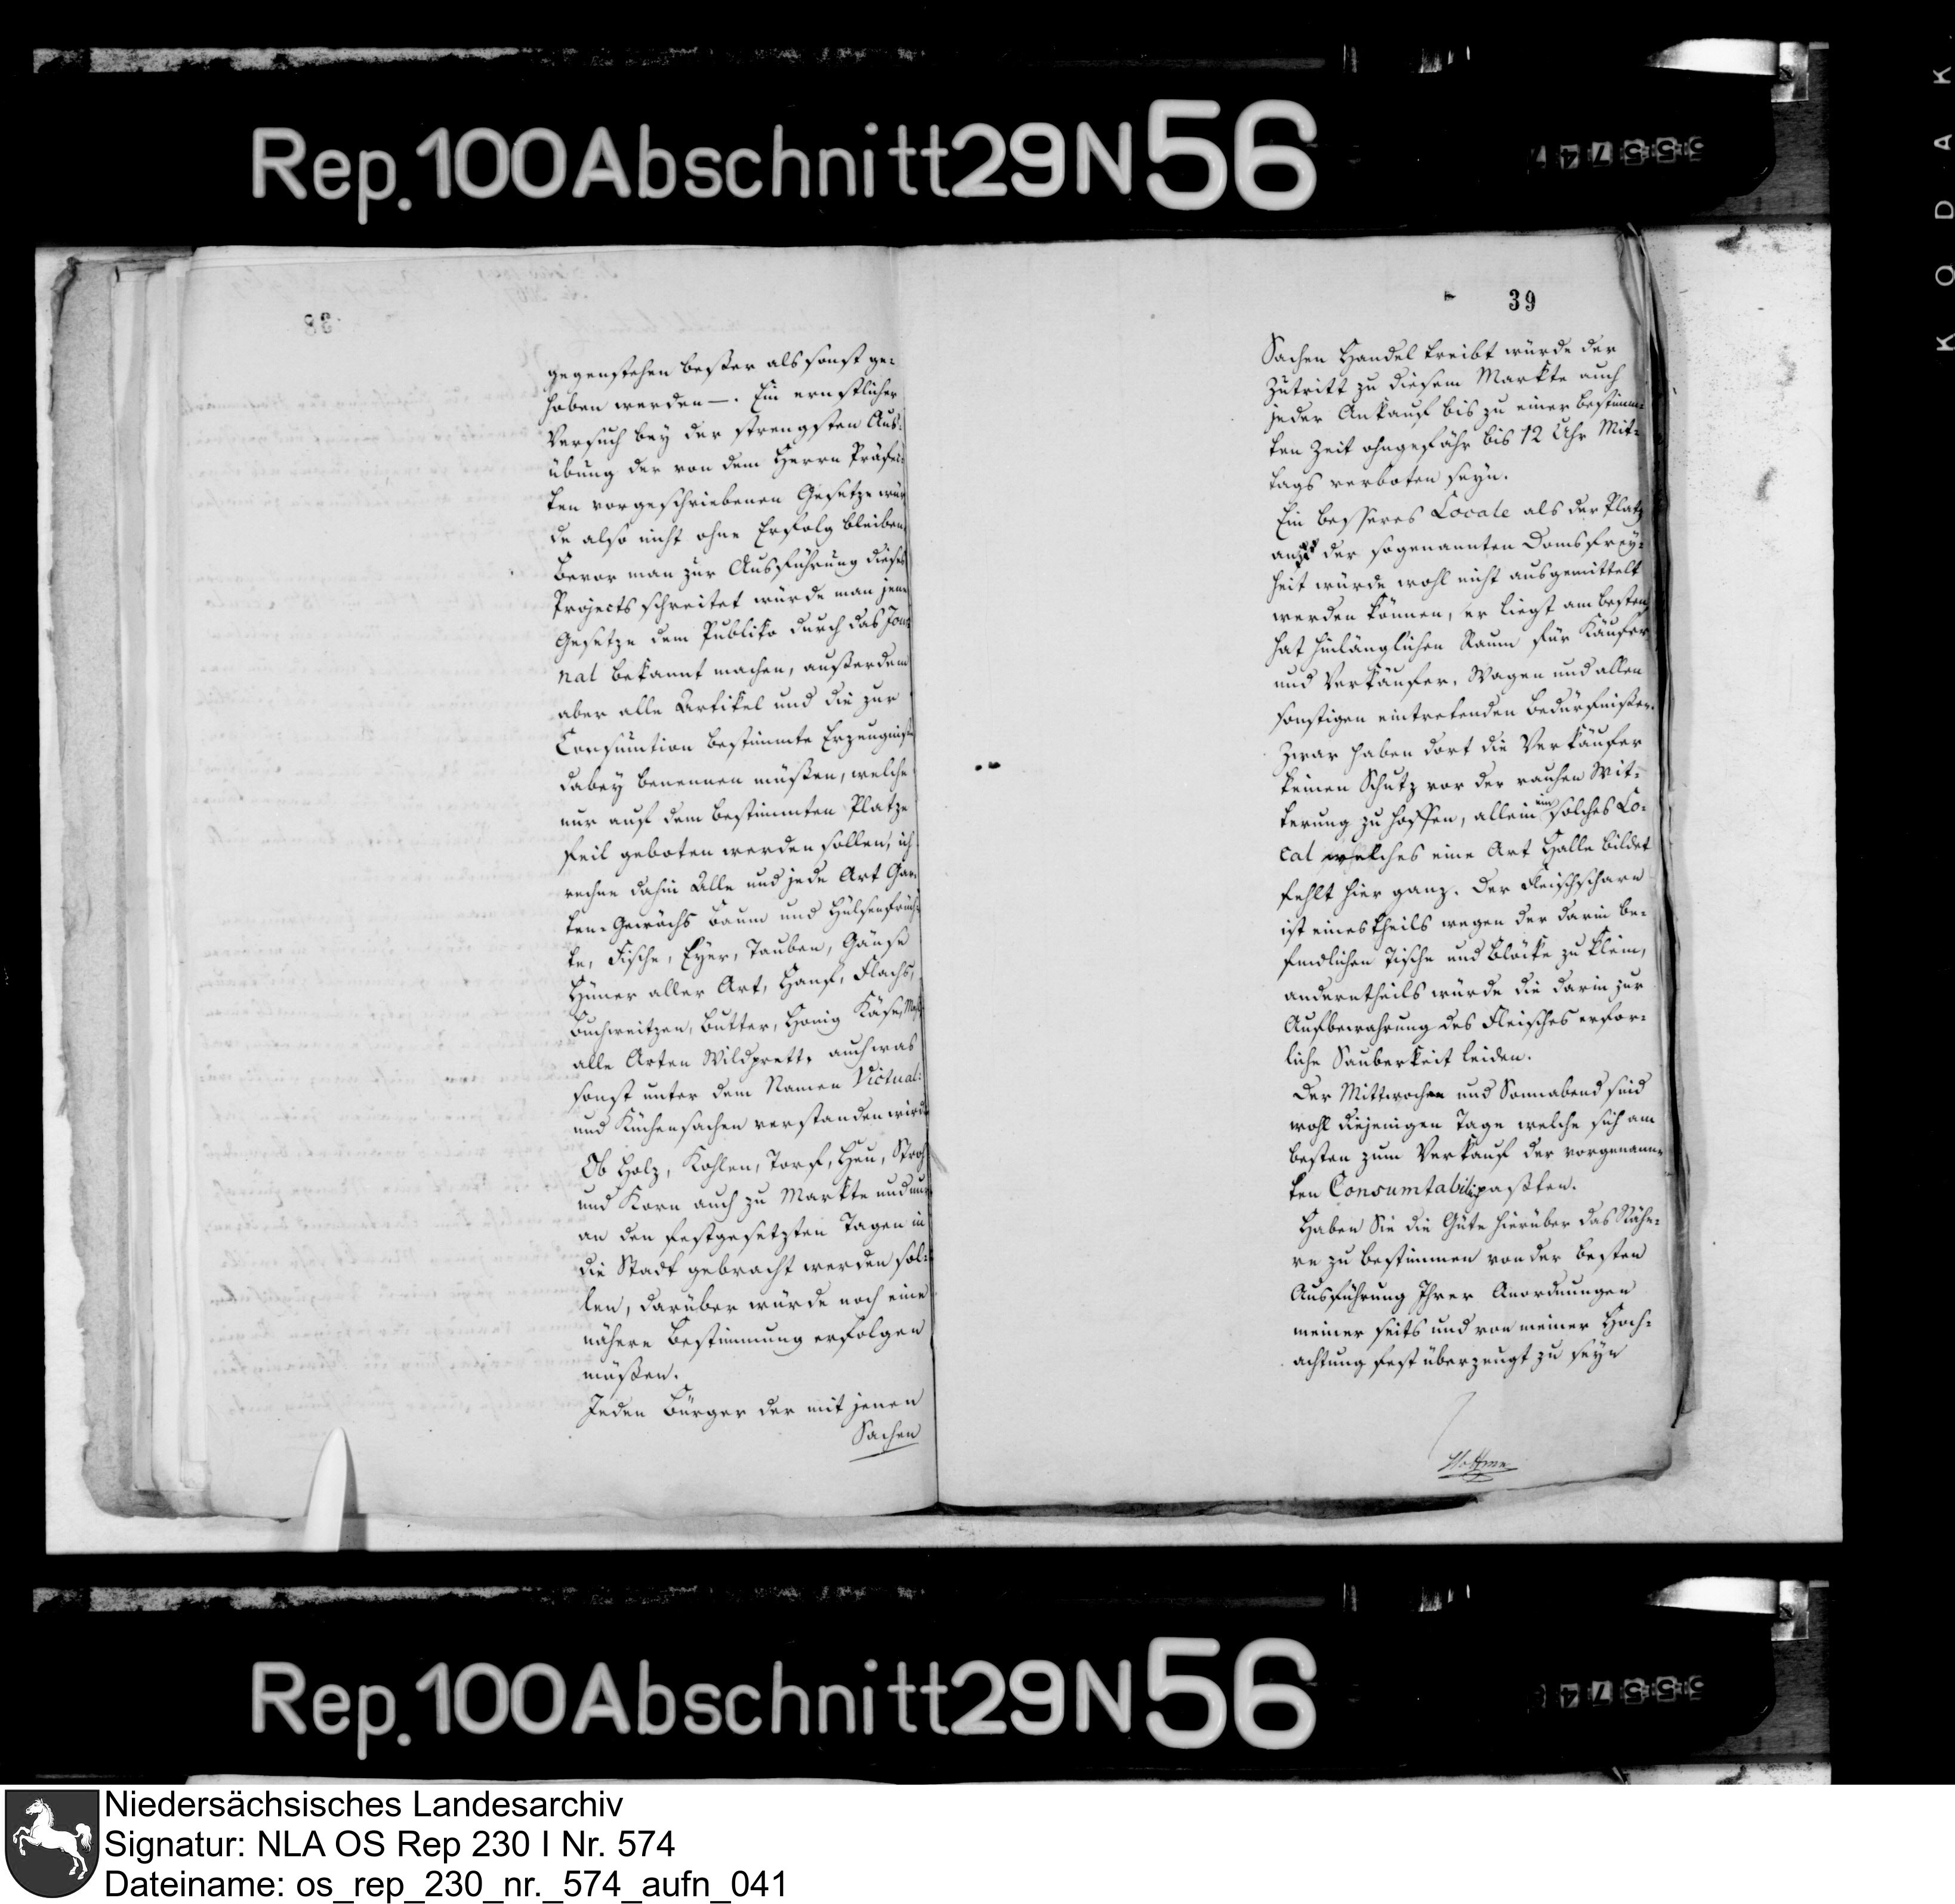 Rep. 100 Abschnitt 29 N 56
38
gegenstehen beßer als sonst ge-
hoben werden —. Ein ernstlicher
Versuch bey der strengsten Aus-
übung der von dem Herrn Präfec-
ten vorgeschriebenen Gesetze wür
de also nicht ohne Erfolg bleiben
Bevor man zur Ausführung dieses
Projects schreitet würde man jene
Gesetze dem Publiko durch das Jour
nal bekannt machen, außerdem
aber alle Artikel und die zur
Consumtion bestimmte Erzeugniße
dabey benennen müßen, welche
nur auf dem bestimmten Platze
feil geboten werden sollen, ich
rechne dahin Alle und jede Art Gar-
ten-Gewächs Baum und Hülsenfrüch-
te, Fische, Eyer, Tauben, Gänse
Hüner aller Art, Hanf, Flachs,
Buchweitzen, Butter, Honig Käse,
alle Arten Wildprett, auch was
sonst unter dem Namen Victual:
und Küchensachen verstanden wird
Ob Holz, Kohlen, Torf, Heu, Stroh
und Korn auch zu Markte und nur
an den festgesetzten Tagen in
die Stadt gebracht werden sol-
len, darüber würde noch eine
nähere Bestimmung erfolgen
müßen.
Jeden Bürger der mit jenen
Sachen
39
Sachen Handel treibt würde der
Zutritt zu diesem Markte auch
jeder Ankauf bis zu einer bestimm-
ten Zeit ohngefähr bis 12 Uhr Mit-
tags verboten seyn.
Ein besseres Locale als der Platz
auf der sogenannten Domsfrey-
heit würde wohl nicht ausgemittelt
werden können, er liegt am besten
hat hinlänglichen Raum für Käufer
und Verkäufer, Wagen und allen
sonstigen eintretenden Bedürfnißen.
Zwar haben dort die Verkäufer
keinen Schutz vor der rauhen Wit-
terung zu hoffen, allein ein solches Lo-
cal welches eine Art Halle bildet
fehlt hier ganz. Der Fleischscharn
ist eines theils wegen der darin be-
findlichen Tische und Blöcke zu klein,
anderntheils würde die darin zur
Aufbewahrung des Fleisches erfor-
liche Sauberkeit leiden.
Der Mittwochen und Sonnabend sind
wohl diejenigen Tage welche sich am
besten zum Verkauf der vorgenann-
ten Consumtabili paßten.
Haben Sie die Güte hierüber das Nähe-
re zu bestimmen von der besten
Ausführung Ihrer Anordnungen
meiner seits und von meiner Hoch-
achtung fest überzeugt zu seyn
KODAK
Rep. 100 Abschnitt 29 N 56
Niedersächsisches Landesarchiv
Signatur: NLA OS Rep 230 I Nr. 574
Dateiname: os_rep_230_nr._574_aufn_041